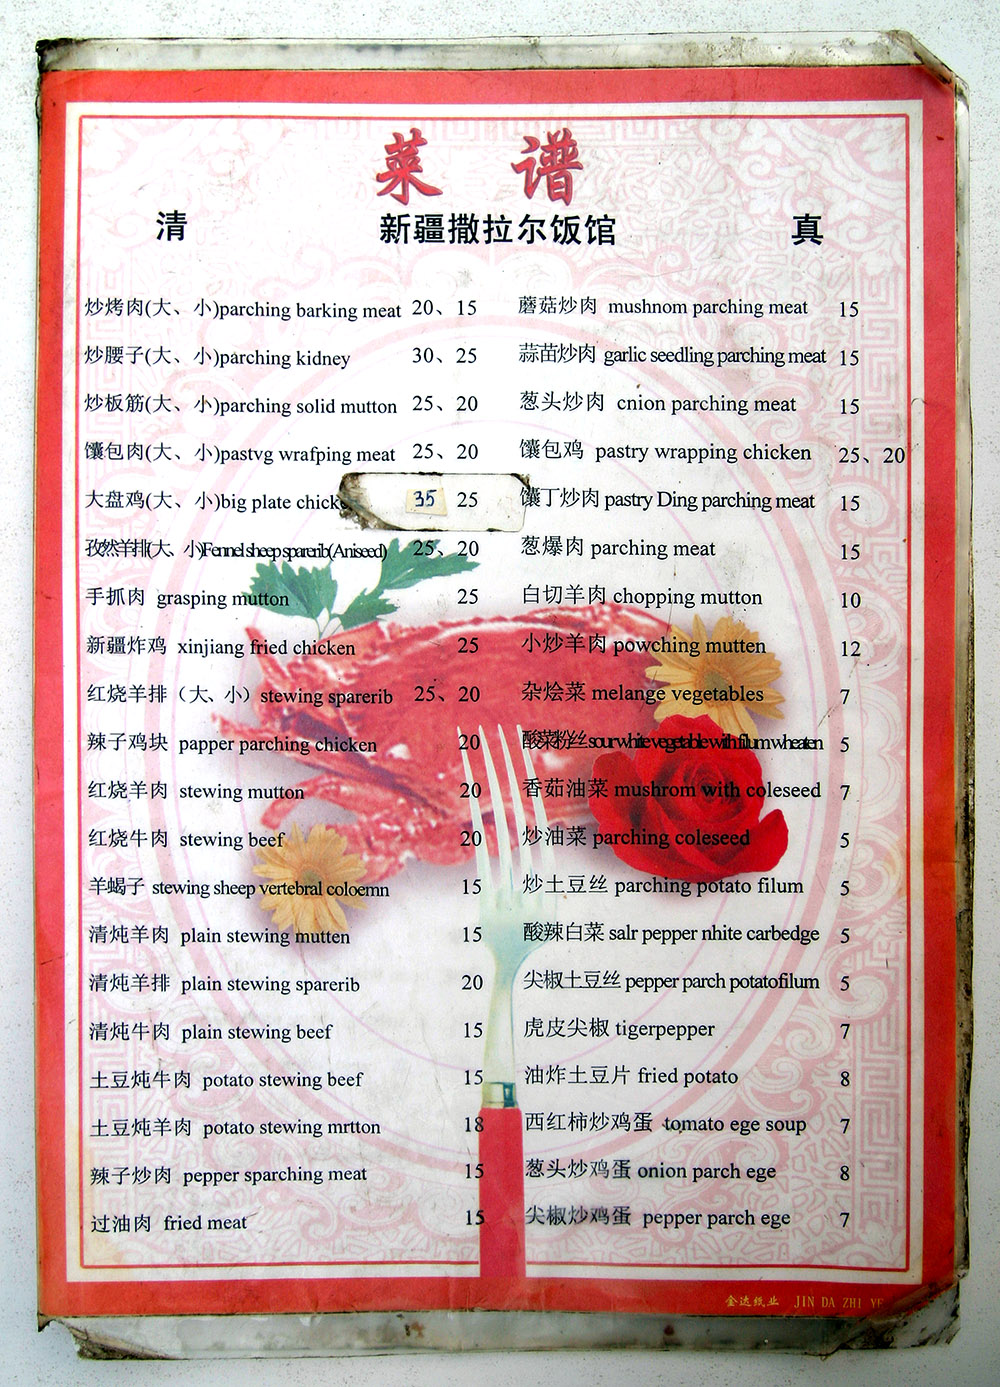 菜 谱
清 新疆撒拉尔饭馆 真
炒烤肉(大、小)parching barking meat 20、15
炒腰子(大、小)parching kidney 30、25
炒板筋(大、小)parching solid mutton 25、20
馕包肉(大、小)pastvg wrafping meat 25、20
大盘鸡(大、小)big plate chick 35 25
孜然羊排(大、小)Fennel sheep sparerib(Aniseed) 25、20
手抓肉 grasping mutton 25
新疆炸鸡 xinjiang fried chicken 25
红烧羊排（大、小）stewing sparerib 25、20
辣子鸡块 papper parching chicken 20
红烧羊肉 stewing mutton 20
红烧牛肉 stewing beef 20
羊蝎子 stewing sheep vertebral coloemn 15
清炖羊肉 plain stewing mutten 15
清炖羊排 plain stewing sparerib 20
清炖牛肉 plain stewing beef 15
土豆炖牛肉 potato stewing beef 15
土豆炖羊肉 potato stewing mrtton 18
辣子炒肉 pepper sparching meat 15
过油肉 fried meat 15
蘑菇炒肉 mushnom parching meat 15
蒜苗炒肉 garlic seedling parching meat 15
葱头炒肉 cnion parching meat 15
馕包鸡 pastry wrapping chicken 25、20
馕丁炒肉 pastry Ding parching meat 15
葱爆肉 parching meat 15
白切羊肉 chopping mutton 10
小炒羊肉 powching mutten 12
杂烩菜 melange vegetables 7
酸菜粉丝 sour white vegetable with filum wheaten 5
香茹油菜 mushrom with coleseed 7
炒油菜 parching coleseed 5
炒土豆丝 parching potato filum 5
酸辣白菜 salr pepper nhite carbedge 5
尖椒土豆丝 pepper parch potatofilum 5
虎皮尖椒 tigerpepper 7
油炸土豆片 fried potato 8
西红柿炒鸡蛋 tomato ege soup 7
葱头炒鸡蛋 onion parch ege 8
尖椒炒鸡蛋 pepper parch ege 7
金达纸业 JIN DA ZHI YE